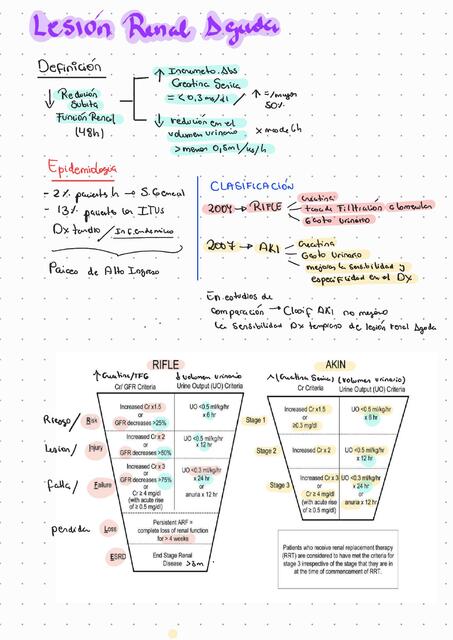 Lesión Renal Aguda
Definición
↓ Redución Subita Función Renal (48h)
↑ Incremeto Abs
Creatina Serica
= < 0,3 mg/dl
↑ =/mayor 50%
↓ redución en el
volumen urinario
> menor 0,5ml/kg/h
x mas de 6h
Epidemiologia
- 2% pacients h → S. General
- 13% pacients en
Dx tardio / Inf. endemico
Paises de Alto Ingreso
CLASIFICACIÓN
2004 → RIFLE
Creatina
tasa de Filtración Glomerular
Gasto urinario
2007 → AKI
Creatina
Gasto Urinario
mejorar la sensibilidad y
especificidad en el DX
En estudios de
comparación → Clasif AKI no mejoro
la sensibilidad Dx temprano de lesión renal Aguda
RIFLE
↑ Creatina/TFG
↓ Volumen urinario
Cr/ GFR Criteria
Urine Output (UO) Criteria
Riesgo/
Risk
Increased Cr x1.5
or
GFR decreases >25%
UO <0.5 ml/kg/hr
x 6 hr
lesion/
Injury
Increased Cr x 2
or
GFR decreases >50%
UO <0.5 ml/kg/hr
x 12 hr
falla/
Failure
Increased Cr x 3
or
GFR decreases >75%
or
Cr ≥ 4 mg/dl
(with acute rise
of ≥ 0.5 mg/dl)
UO <0.3 ml/kg/hr
x 24 hr
or
anuria x 12 hr
perdida
Loss
Persistent ARF =
complete loss of renal function
for > 4 weeks
ESRD
End Stage Renal
Disease >3m
AKIN
(Creatina Serica)
(Volumen urinario)
Cr Criteria
Urine Output (UO) Criteria
Stage 1
Increased Cr x1.5
or
≥0.3 mg/dl
UO <0.5 ml/kg/hr
x 6 hr
Stage 2
Increased Cr x 2
UO <0.5 ml/kg/hr
x 12 hr
Stage 3
Increased Cr x 3
or
Cr ≥ 4 mg/dl
(with acute rise
of ≥ 0.5 mg/dl)
UO <0.3 ml/kg/hr
x 24 hr
or
anuria x 12 hr
Patients who receive renal replacement therapy
(RRT) are considered to have met the criteria for
stage 3 irrespective of the stage that they are in
at the time of commencement of RRT.